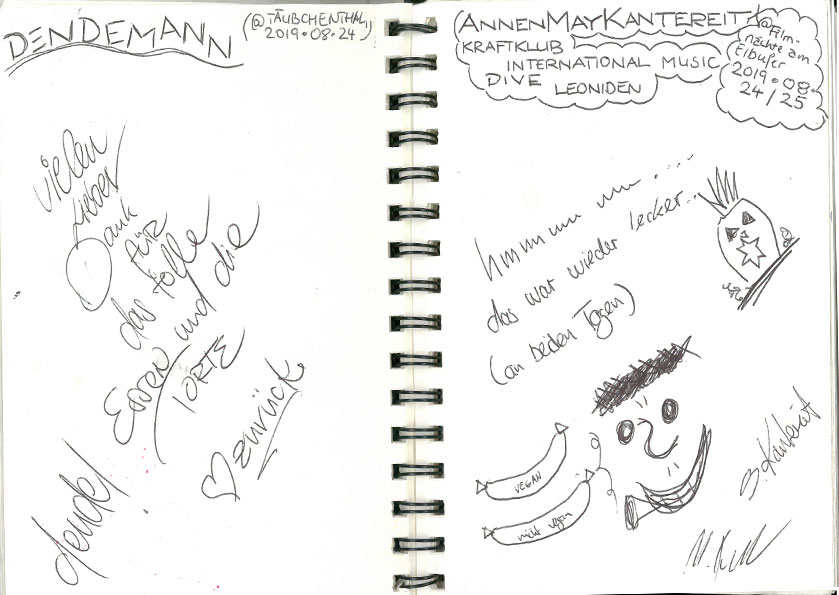 DENDEMANN
(@TÄUBCHENTHAL,
2019.08.24)
vielen
lieber
Dank
für
das tolle
Essen und die
TORTE
♡ zurück
dendel
(ANNENMAYKANTEREIT)
KRAFTKLUB
INTERNATIONAL MUSIC
DIVE LEONIDEN
@Film-
nächte am
Elbufer
2019.08.
24/25
das war wieder lecker..
(an beiden Tagen)
VEGAN
nicht vegan
S. Kantereit